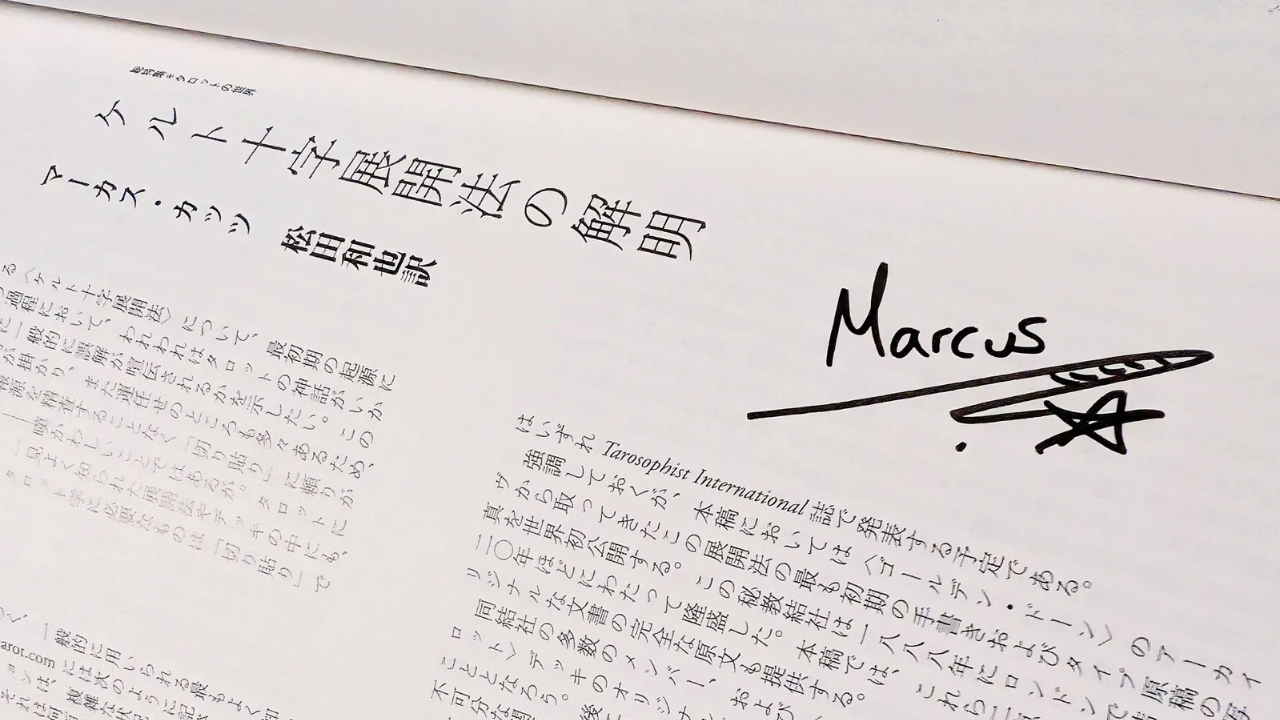 総特集*タロットの世界
ケルト十字展開法の解明
マーカス・カッツ 松田和也訳
Marcus
る〈ケルト十字展開法〉について、最初期の起源に
過程において、われわれはタロットの神話がいか
に一般的に誤解が宣伝されるかを示したい。この
が掛かり、また
を精査することなく「切り貼り」に頼りが
嘆かわしいことではあるが。タロットに
一見よく知られた展開法やデッキの中にも、
タロット学に必要なものは「切り貼り」で
はいずれ Tarosophist International 誌で発表する予定である。
強調しておくが、本稿においては〈ゴールデン・ドーン〉のアーカイ
ヴから取ってきたこの展開法の最も初期の手書きおよびタイプ原稿の写
真を世界初公開する。この秘教結社は一八八八年にロンドンで
二〇年ほどにわたって隆盛した。本稿では、これら
リジナルな文書の完全な原文も提供する。
同結社の多数のメンバー、および
ロット〉デッキのオリジナ
こととなろう。後
不可分な
く 一般的に用いられる最もよく知
arot.com には次のように記